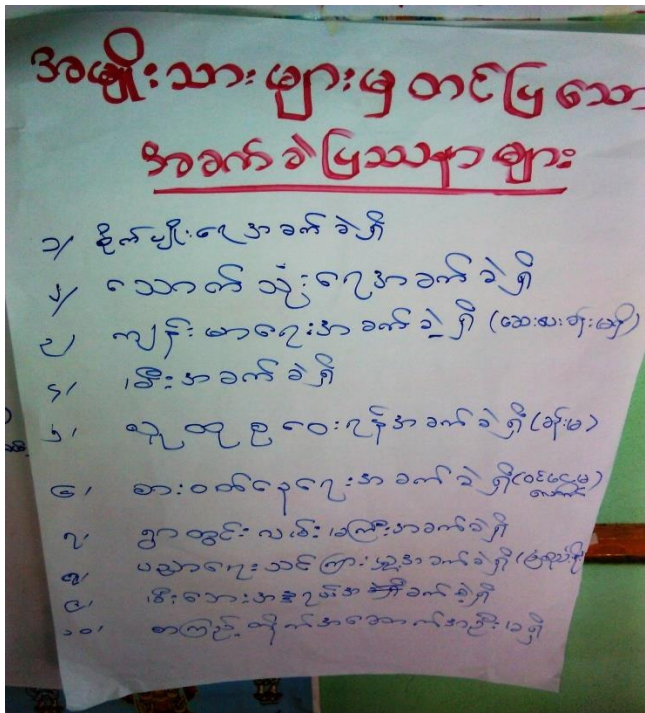 အမျိုးသားများမှ တင်ပြသော
အခက်ခဲပြဿနာများ
၁/ စိုက်ပျိုးရေအခက်ခဲရှိ
၂/ သောက်သုံးရေအခက်ခဲရှိ
၃/ ကျန်းမာရေးအခက်ခဲရှိ (ဆေးပေးခန်းမရှိ)
၄/ မီးအခက်ခဲရှိ
၅/ လူထုစုဝေးရန်အခက်ခဲရှိ (ခန်းမ)
၆/ စားဝတ်နေရေးအခက်ခဲရှိ
၇/ ရွာတွင်းလမ်း အခက်ခဲရှိ
၈/ ပညာရေးသင်ကြား အခက်ခဲရှိ
၉/ မီးဘေးအန္တရာယ်အခက်ခဲရှိ
၁၀/ စာကြည့်တိုက်အဆောက်အဦးမရှိ